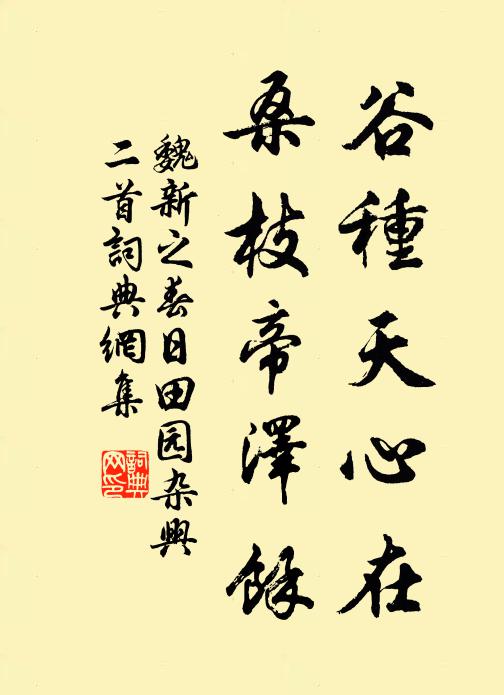 谷種天心在
桑枝帝澤餘
魏新之春日田园杂興
二首詞典網集
詞典
网印